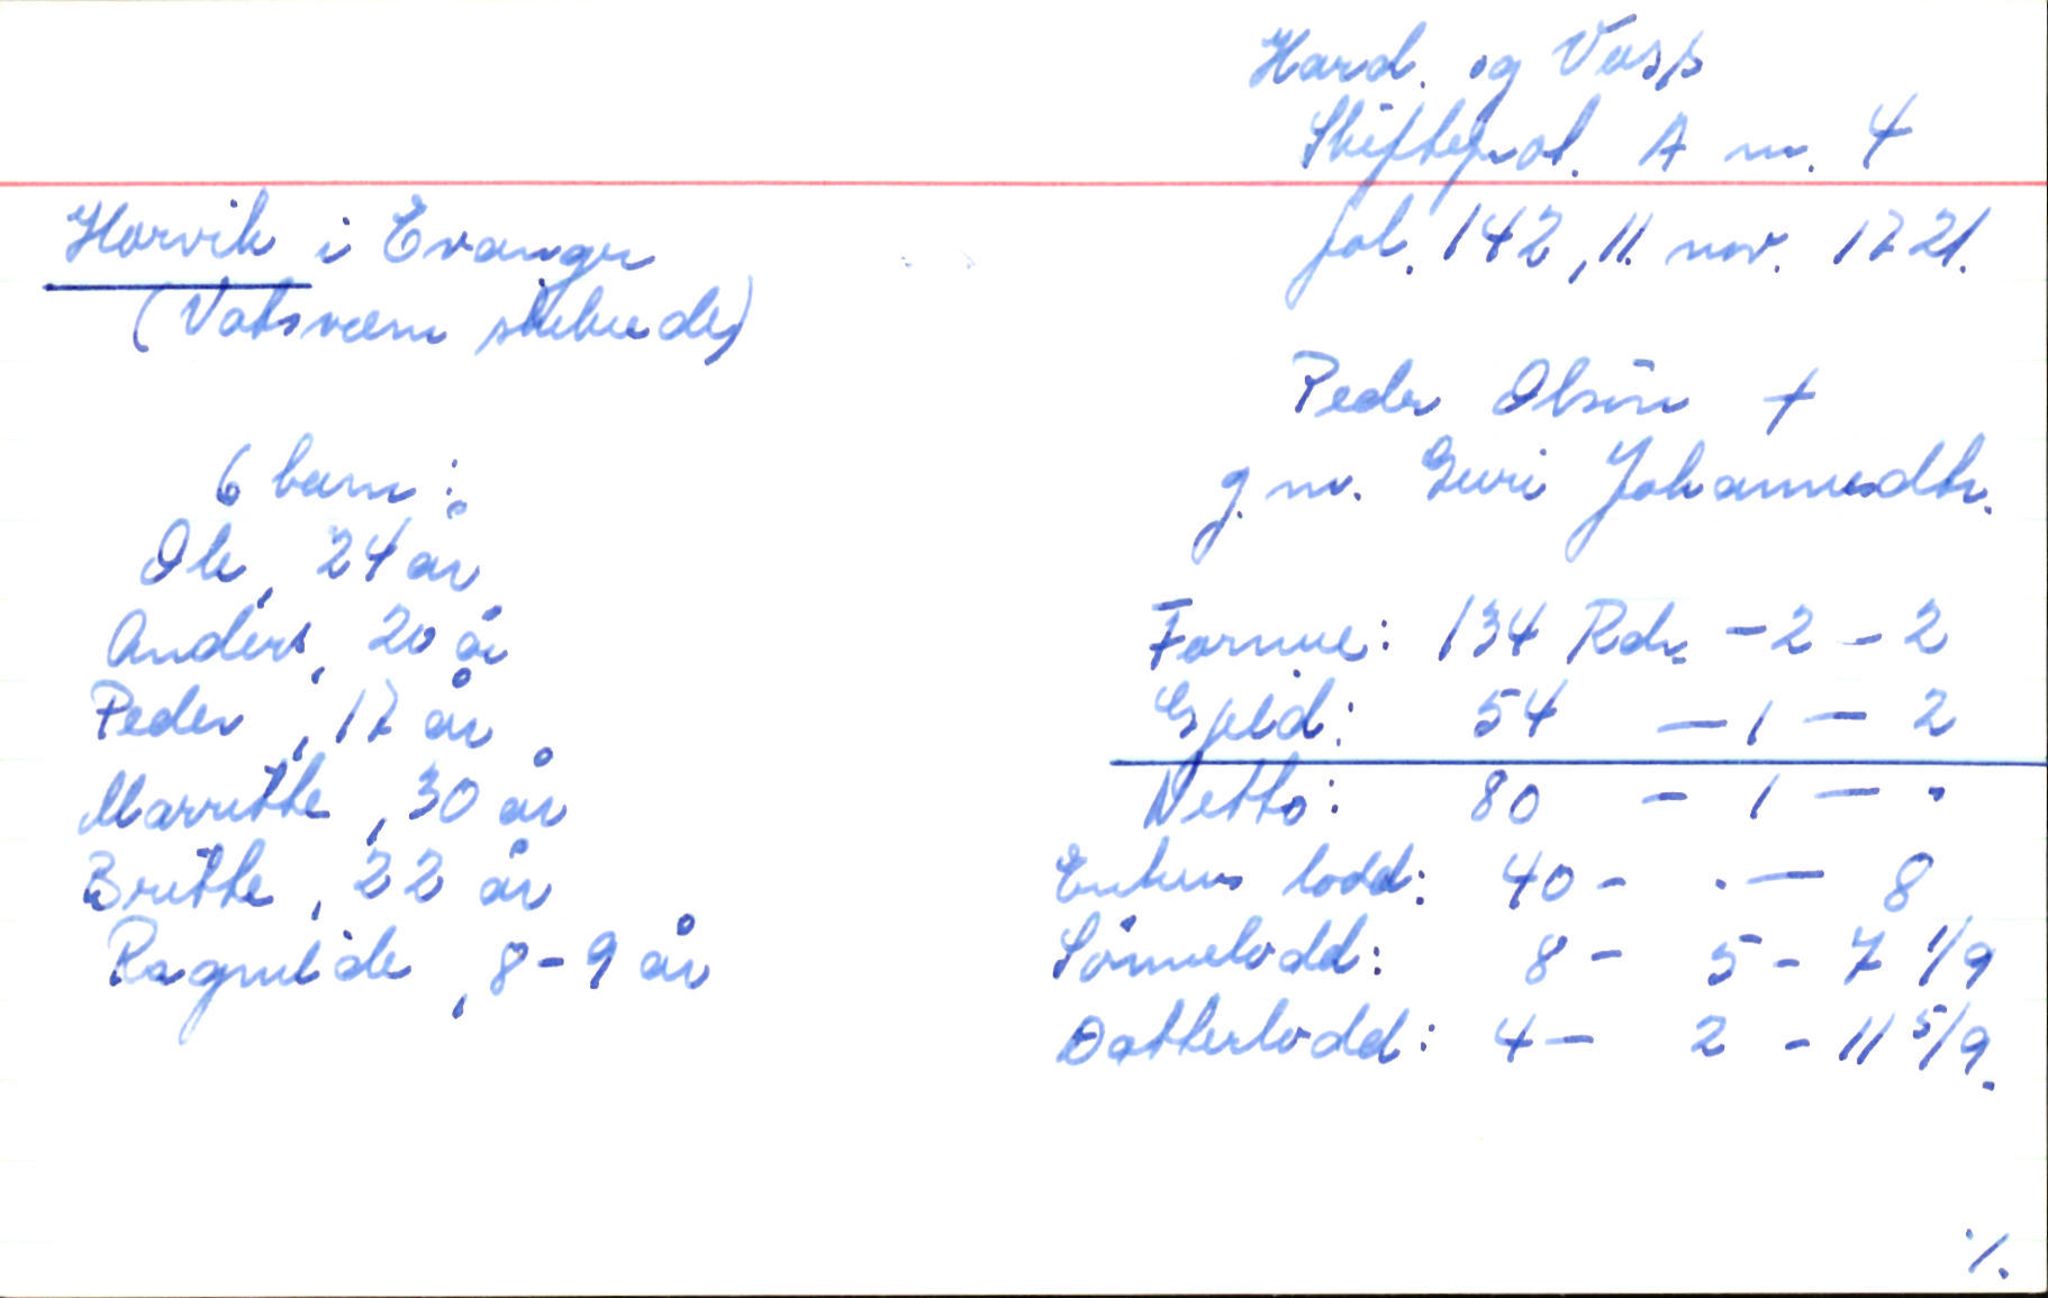 Hard. og Voss
Skifteprot. A nr. 4
fol. 142, 11. nov. 1721.
Horvik i Evanger
(Vatsværn skibrede)
Peder Olsøn +
g.m. Guri Johannesdtr.
6 barn:
Ole, 24 år
Anders, 20 år
Peder, 17 år
Marritte, 30 år
Britte, 22 år
Ragnilde, 8-9 år
Formue: 134 Rdr. - 2 - 2
Gjeld: 54 - 1 - 2
Netto: 80 - 1 - .
Enkens lodd: 40 - . - 8
Sønnelodd: 8 - 5 - 7 1/9
Datterlodd: 4 - 2 - 11 5/9.
./.